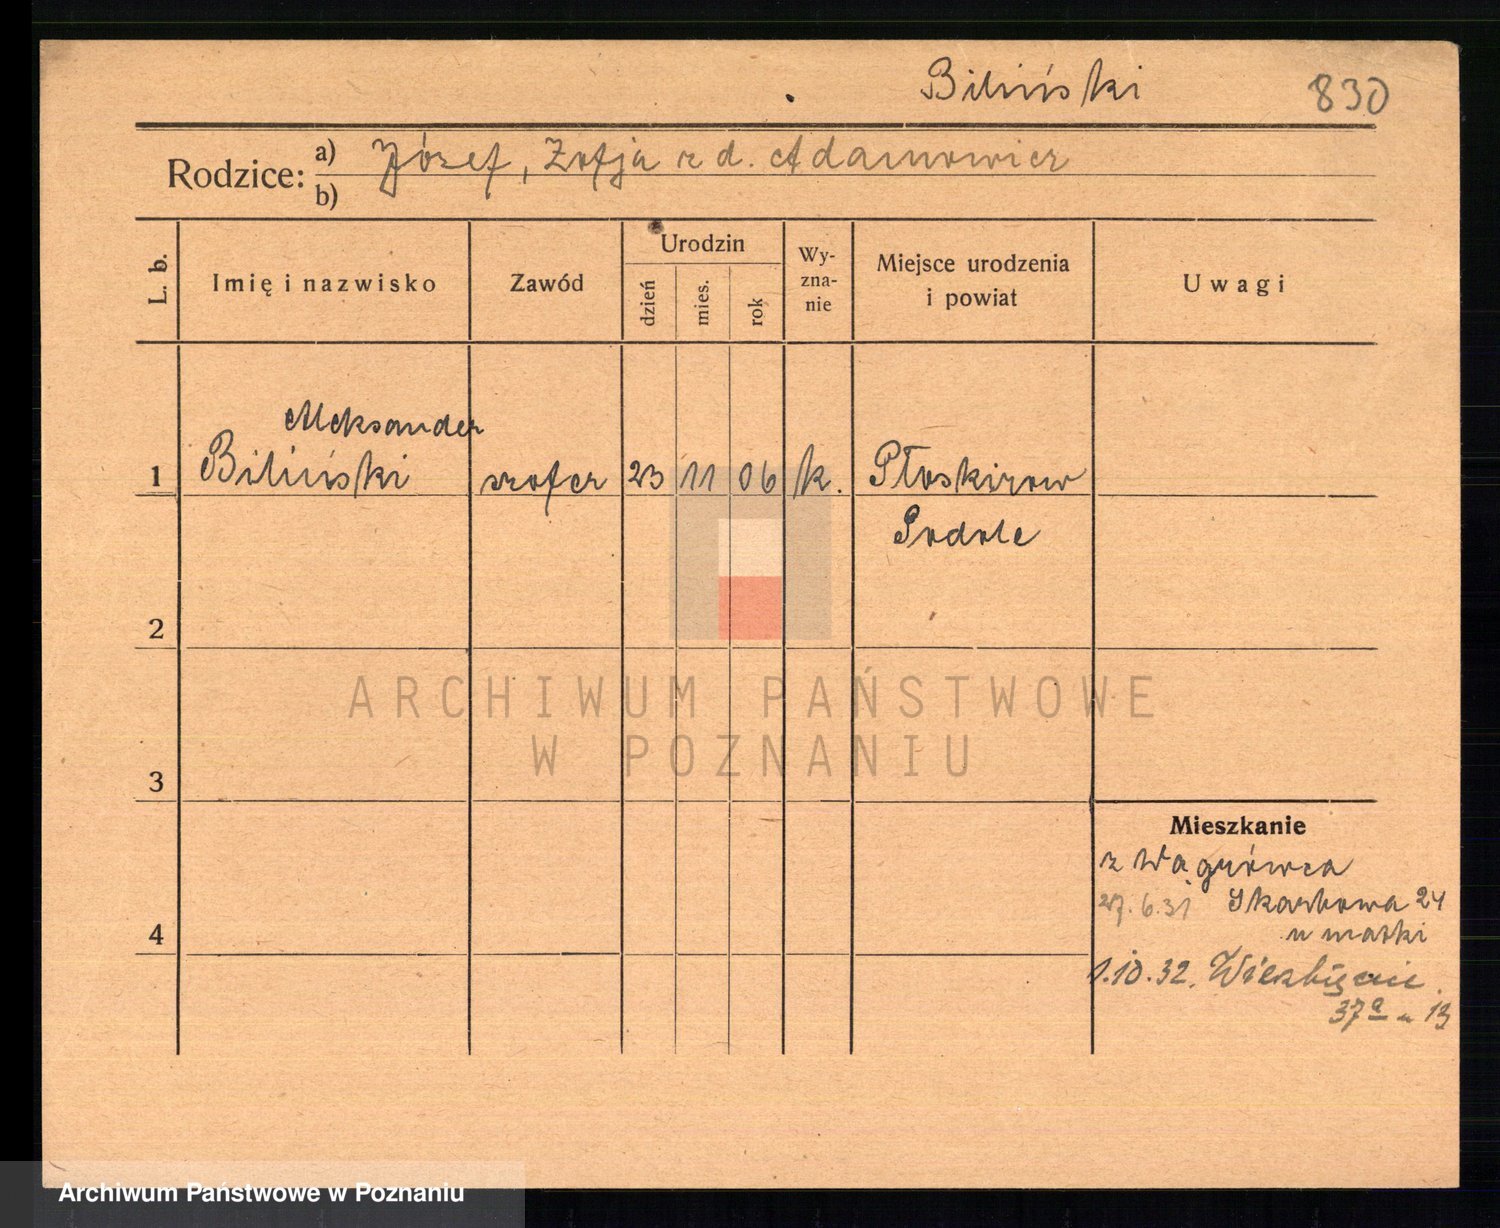 Biliński 830
Rodzice: a) Józef, Zofja z d. Adamowicz
b)
L. b. Imię i nazwisko Zawód Urodzin dzień mies. rok Wy-zna-nie Miejsce urodzenia i powiat Uwagi
Aleksander
1 Biliński szofer 23 11 06 k. Płoskirow
Podole
2
ARCHIWUM PAŃSTWOWE
W POZNANIU
3
Mieszkanie
z Wągrówca
27.6.31 Skarbowa 24
u matki
4
1.10.32. Wierzbięcice
37a 13
Archiwum Państwowe w Poznaniu